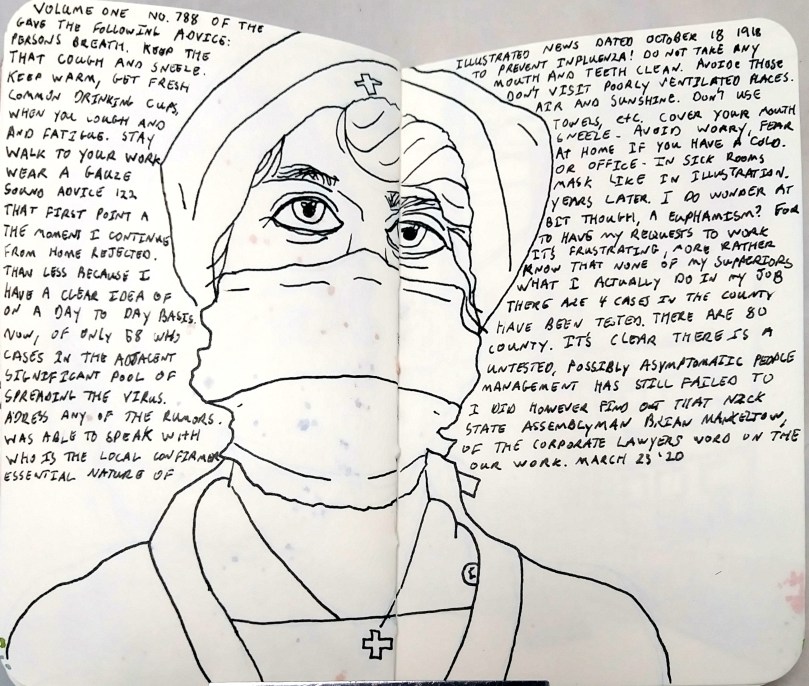 VOLUME ONE NO. 788 OF THE ILLUSTRATED NEWS DATED OCTOBER 18 1918
GAVE THE FOLLOWING ADVICE: TO PREVENT INFLUENZA! DO NOT TAKE ANY
PERSONS BREATH. KEEP THE MOUTH AND TEETH CLEAN. AVOIDE THOSE
THAT COUGH AND SNEEZE. DON'T VISIT POORLY VENTILATED PLACES.
KEEP WARM, GET FRESH AIR AND SUNSHINE. DON'T USE
COMMON DRINKING CUPS, TOWELS, ETC. COVER YOUR MOUTH
WHEN YOU COUGH AND SNEEZE - AVOID WORRY, FEAR
AND FATIGUE. STAY AT HOME IF YOU HAVE A COLD.
WALK TO YOUR WORK OR OFFICE - IN SICK ROOMS
WEAR A GAUZE MASK LIKE IN ILLUSTRATION.
SOUND ADVICE 122 YEARS LATER. I DO WONDER AT
THAT FIRST POINT A BIT THOUGH, A EUPHAMISM? FOR
THE MOMENT I CONTINUE TO HAVE MY REQUESTS TO WORK
FROM HOME REJECTED. ITS FRUSTRATING, MORE RATHER
THAN LESS BECAUSE I KNOW THAT NONE OF MY SUPPERIORS
HAVE A CLEAR IDEA OF WHAT I ACTUALLY DO IN MY JOB
ON A DAY TO DAY BASIS. THERE ARE 4 CASES IN THE COUNTY
NOW, OF ONLY 58 WHO HAVE BEEN TESTED. THERE ARE 80
CASES IN THE ADJACENT COUNTY. IT'S CLEAR THERE IS A
SIGNIFICANT POOL OF UNTESTED, POSSIBLY ASYMPTOMATIC PEOPLE
SPREADING THE VIRUS. MANAGEMENT HAS STILL FAILED TO
ADRESS ANY OF THE RUMORS. I DID HOWEVER FIND OUT THAT NICK
WAS ABLE TO SPEAK WITH STATE ASSEMBLYMAN BRIAN MANKELTOW,
WHO IS THE LOCAL CONFIRMER OF THE CORPORATE LAWYERS WORD ON THE
ESSENTIAL NATURE OF OUR WORK. MARCH 23 '20